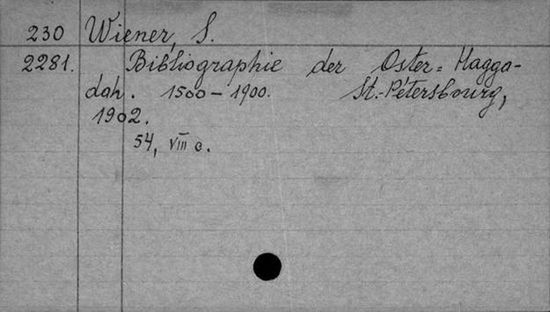 230 Wiener, S.
2281. Bibliographie der Oster-Hagga-
dah. 1500-1900. St.-Pétersbourg,
1902.
54, VIII c.